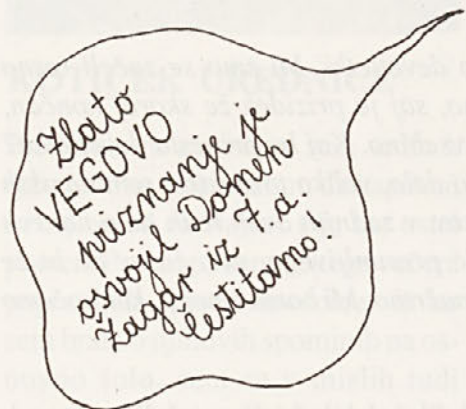 Zlato
VEGOVO
priznanje je
osvojil Dolmen
Žagar iz 7.a.
Čestitamo!